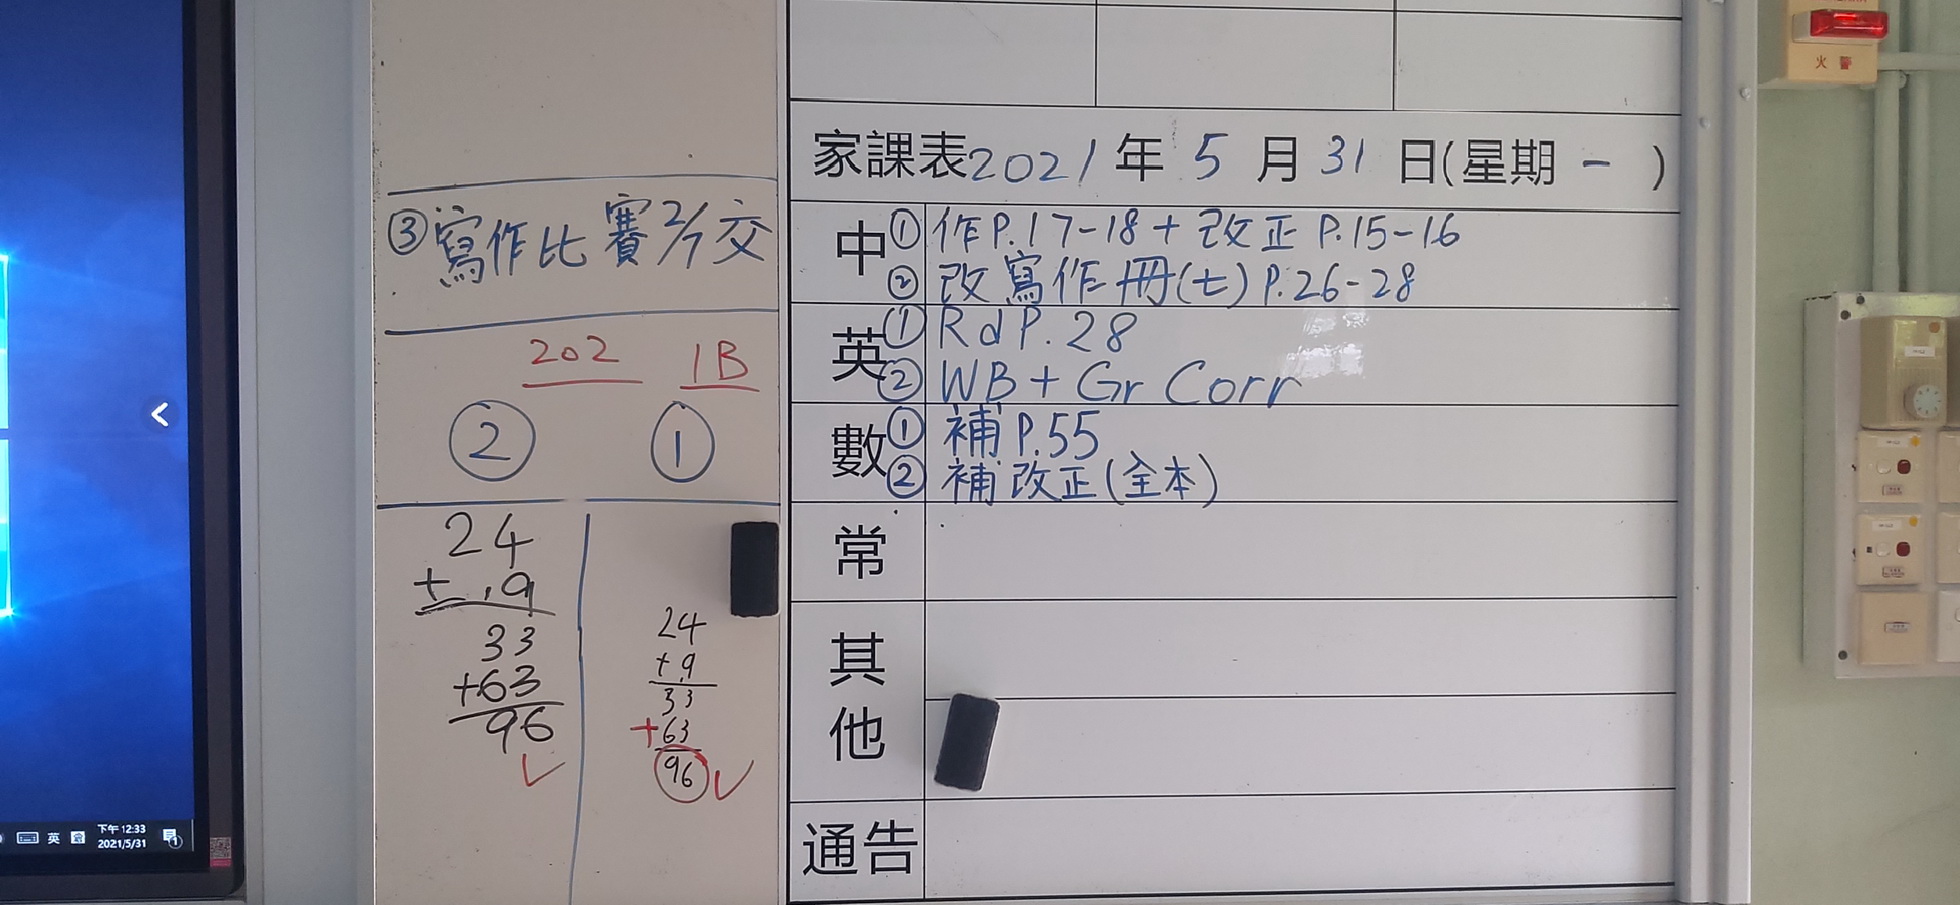 ③寫作比賽2/7交
202 1B
② ①
24
+ 9
33
+63
96
24
+ 9
33
+63
96
家課表2021年5月31日(星期一)
中①作P.17-18+改正P.15-16
②改寫作冊(七)P.26-28
英①Rd P.28
②WB+Gr Corr
數①補P.55
②補改正(全本)
常
其他
通告
火警
英
下午 12:33
2021/5/31